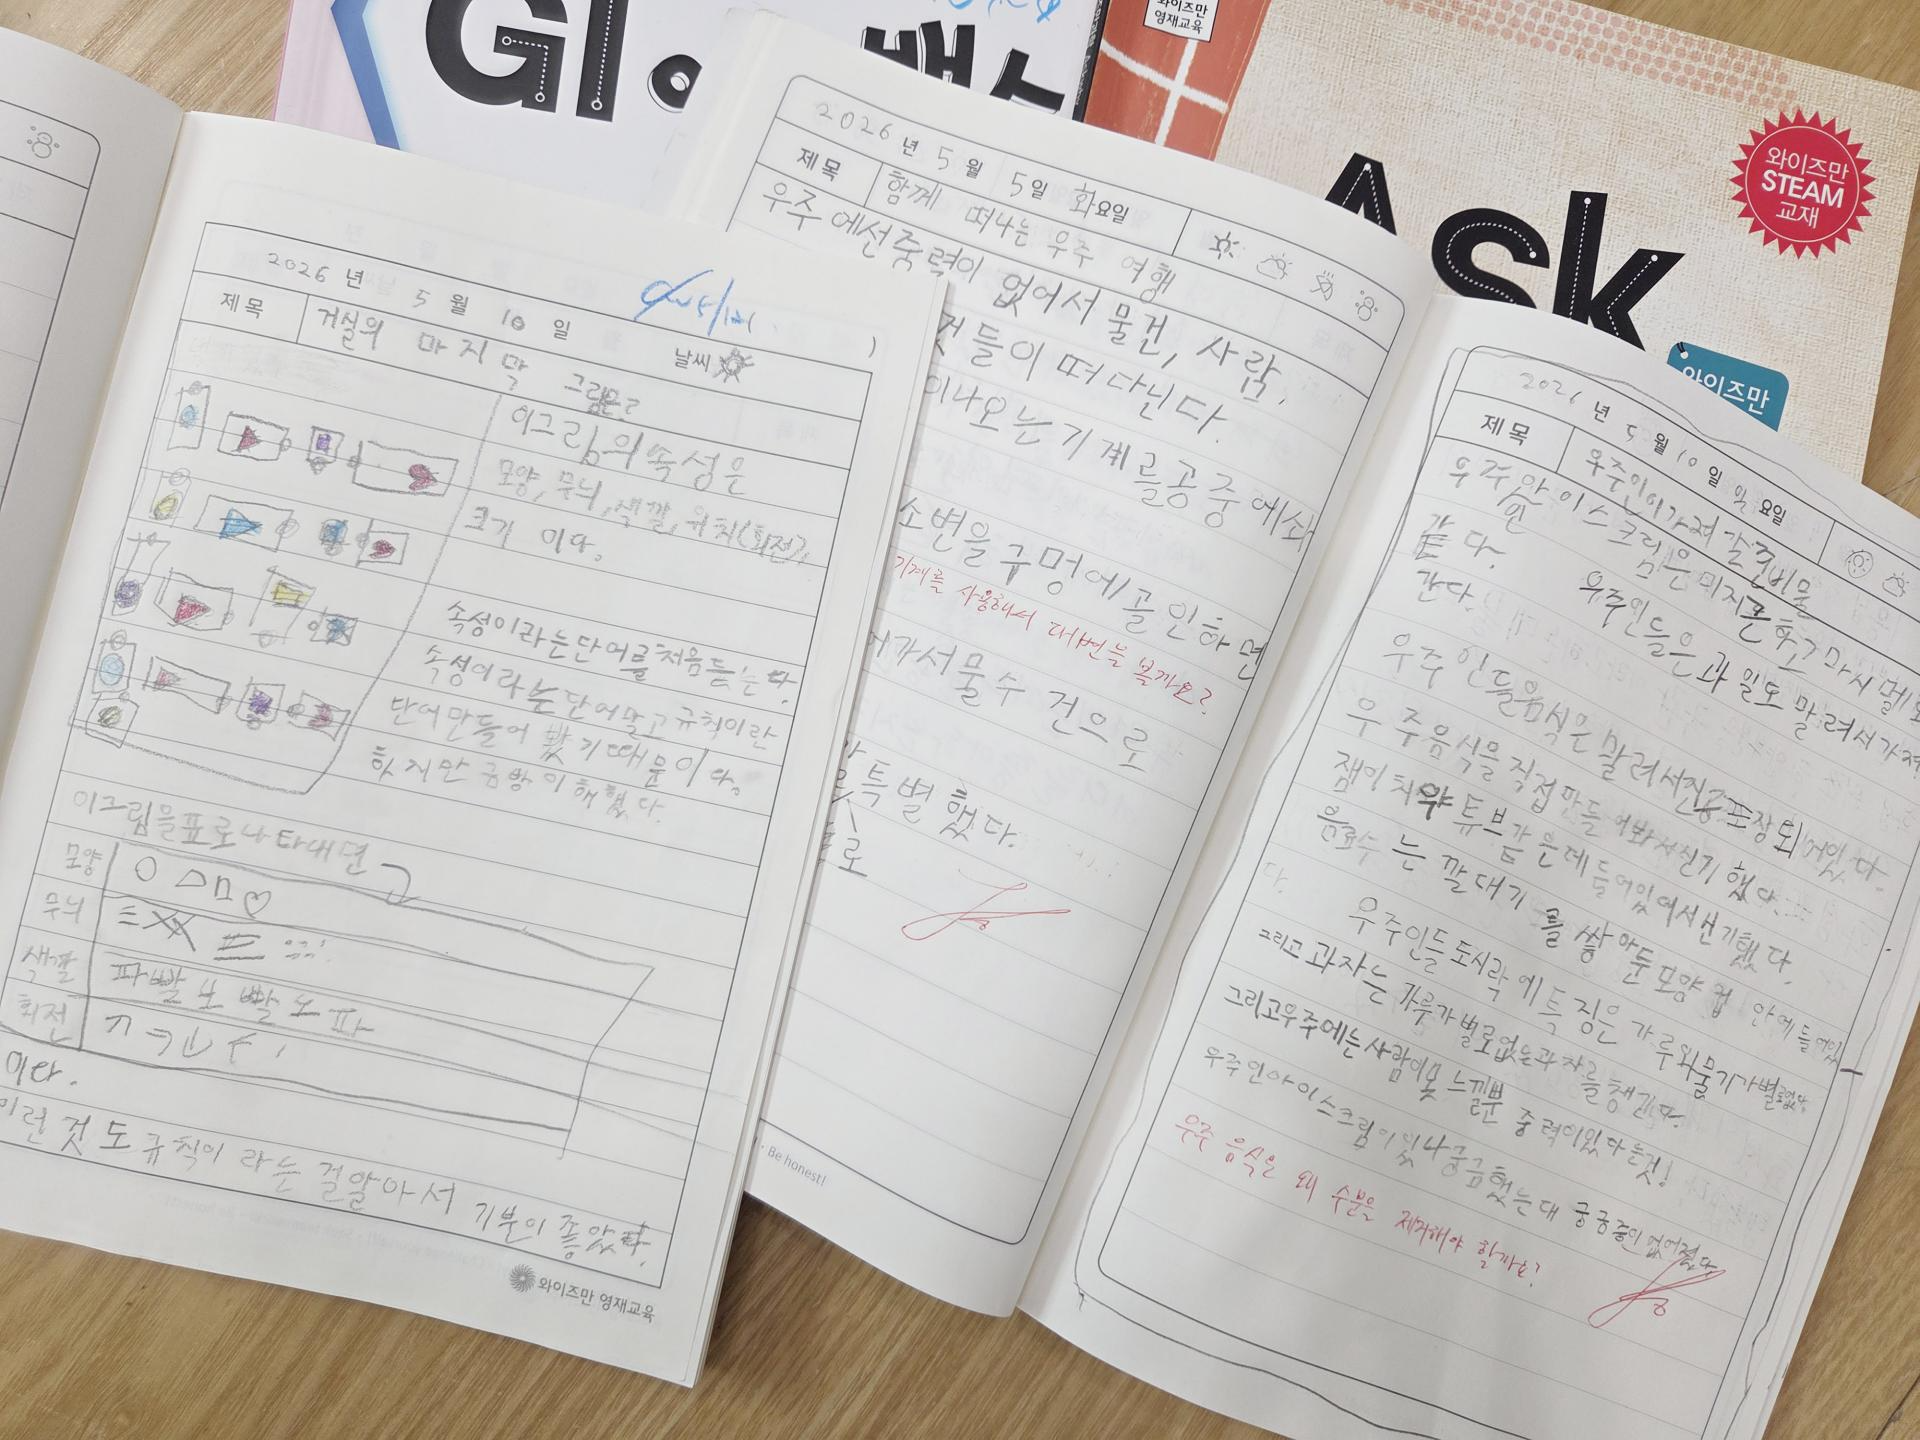 GI
와이즈만
영재교육
Ask
와이즈만
STEAM
교재
와이즈만
2026 년 5 월 10 일 날씨
제목 거실의 마지막 그림은?
이그림의 속성은
모양, 무늬, 색깔, 위치(회전),
크기 이다.
속성이라는단어를처음듣는다.
속성이라는단어말고규칙이란
단어만들어 봤기때문이다.
하지만 금방이해했다.
이그림을표로나타내면
모양
무늬
색깔 파빨노빨노파
회전
이다.
이런것도규칙이라는걸알아서 기분이좋았다.
와이즈만 영재교육
2026 년 5 월 5일 화요일
제목 함께 떠나는 우주 여행
우주에선중력이 없어서 물건, 사람,
것들이 떠다닌다.
이나오는기계를공중에
소변을구멍에골인하면
기계를 사용해서 대변을 볼까요?
어가서물수건으로
특별했다.
로
Be honest!
2026 년 5 월 10 일 일 요일
제목 우주인이가져갈준비물
우주인아이스크림은미지근하고마시멜로
같다. 우주인들은과일도말려서가져
간다.
우주인들음식은말려서진공포장되어있다.
우주음식을직접만들어봐서신기했다.
잼이치약튜브같은데들어있어서신기했다.
음료수는깔대기를쌓아둔모양컵안에들어있
다.
우주인들도시락에특징은가루와물기가별로없다.
그리고과자는가루가별로없는과자를챙긴다.
그리고우주에는사람이못느낄뿐중력이있다는것!
우주인아이스크림이있나궁금했는대궁금증이없어졌다.
우주 음식은 왜 수분을 제거해야 할까요?